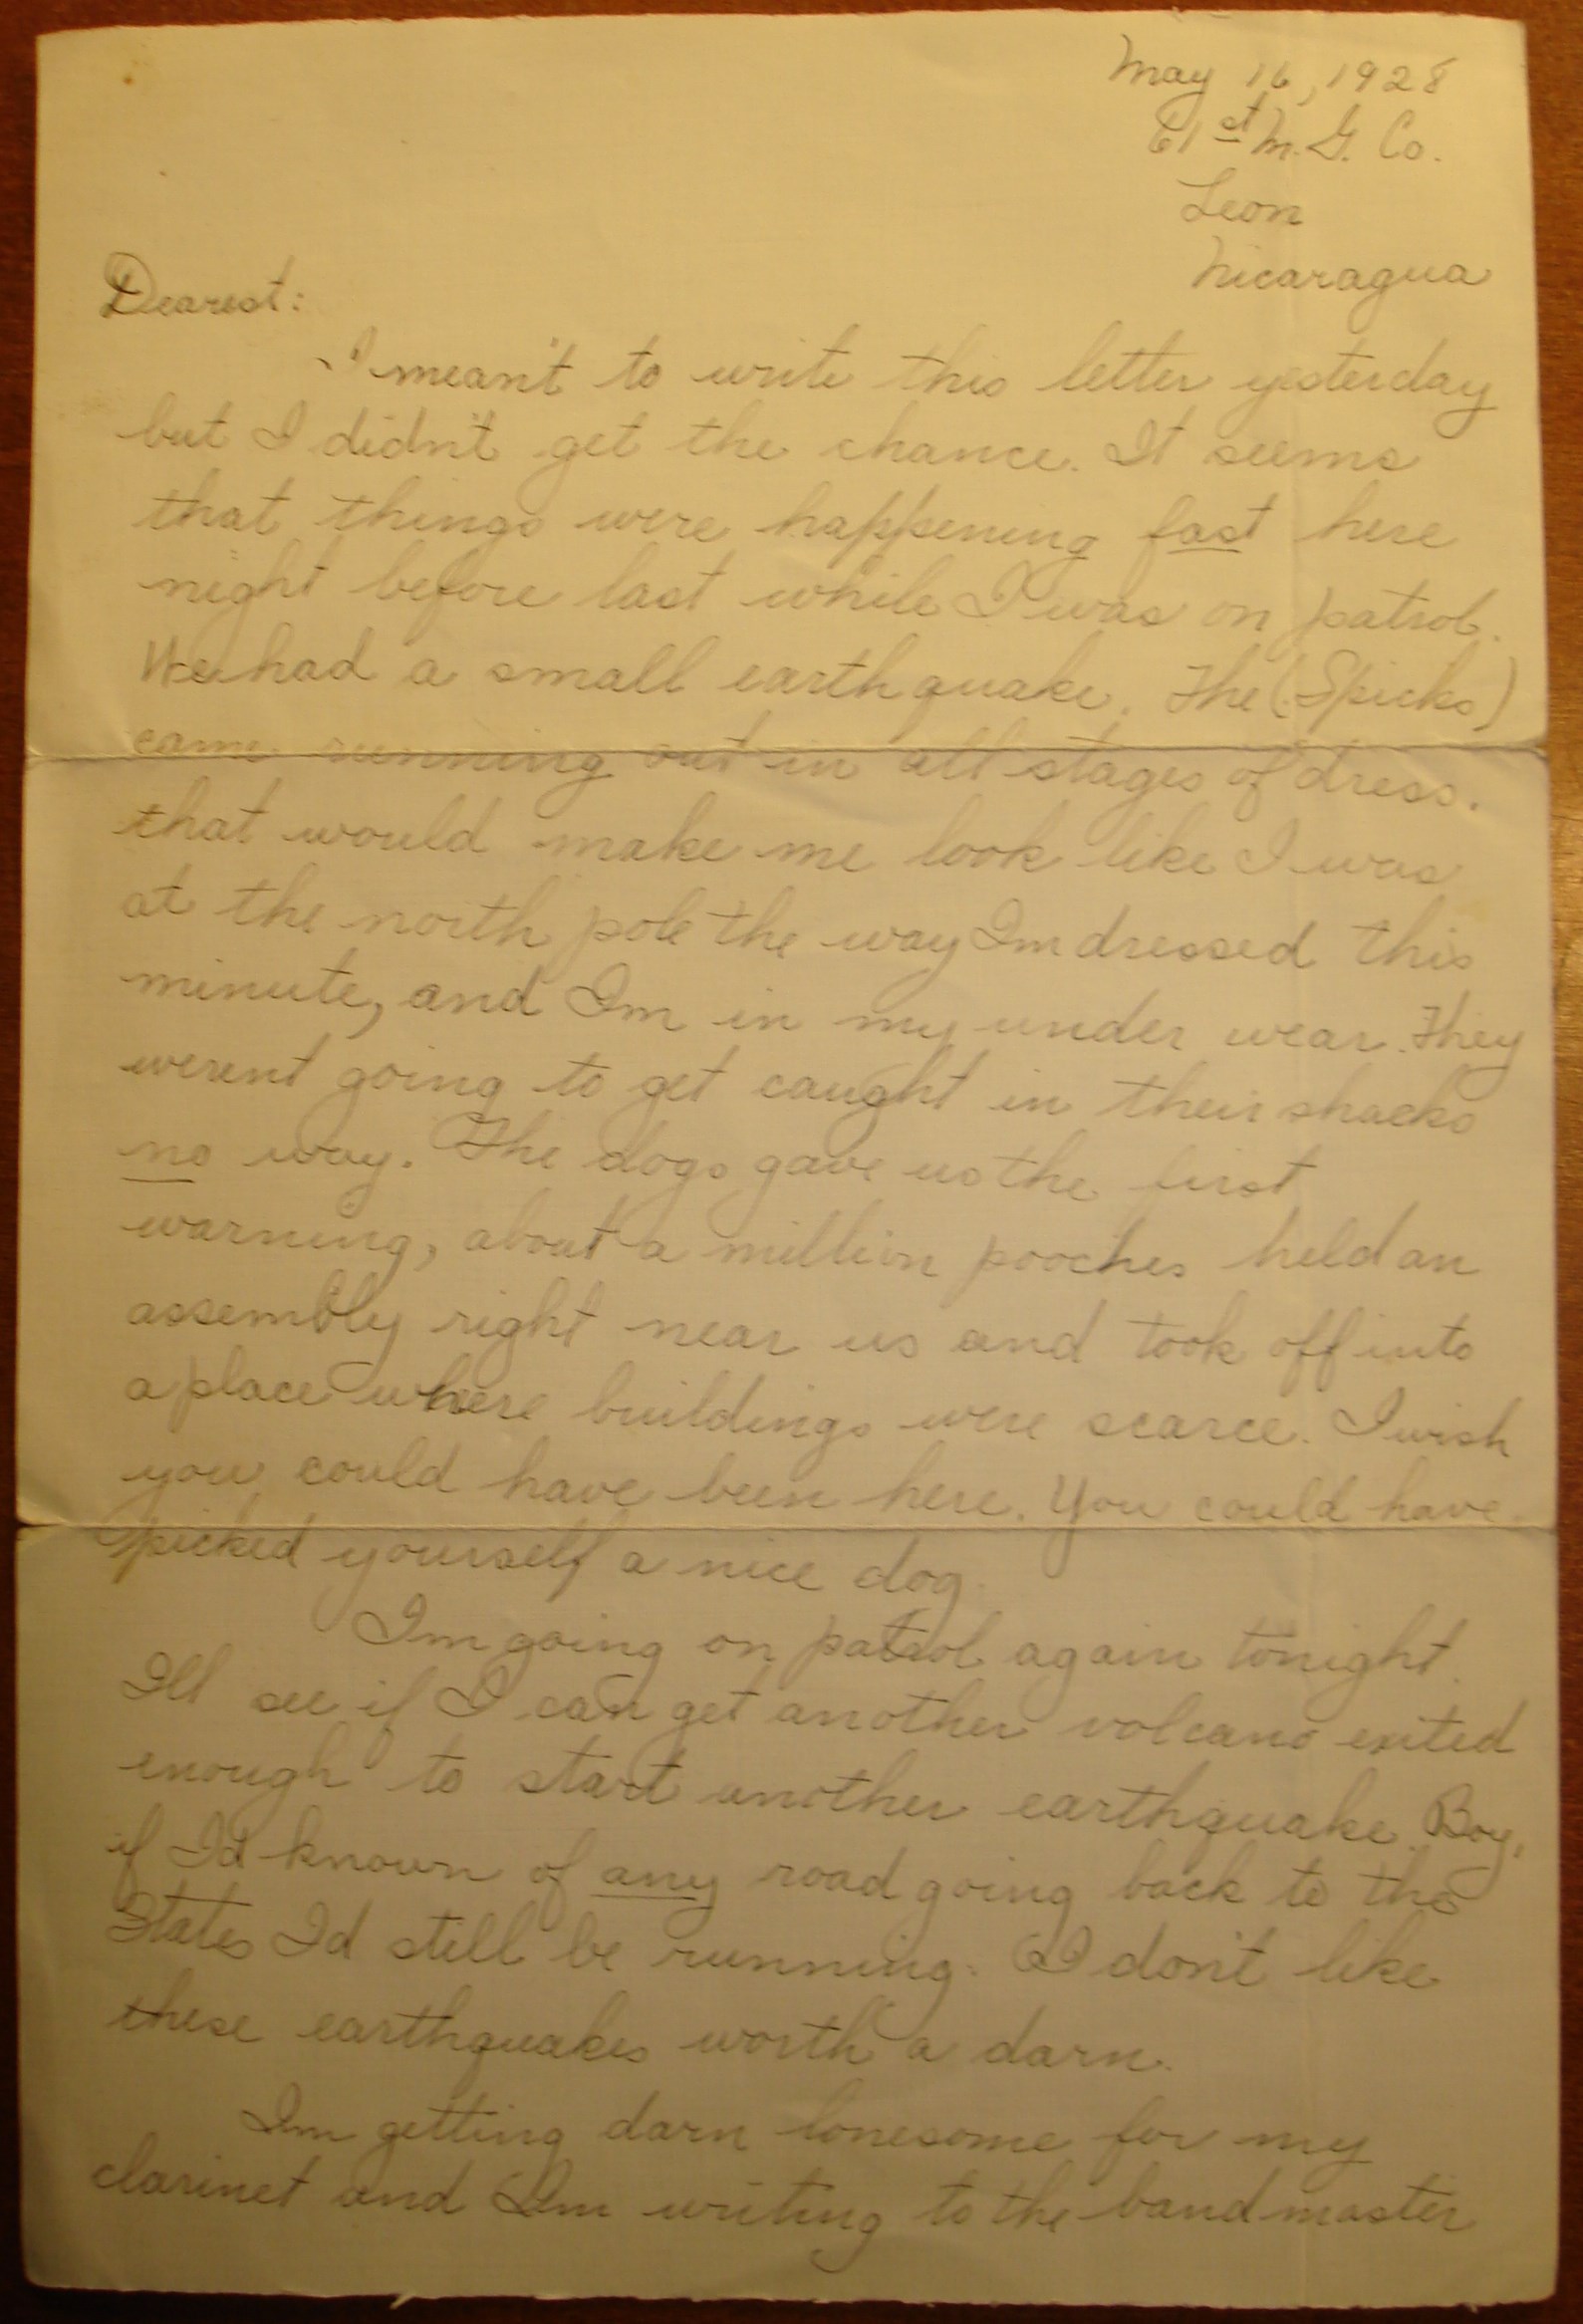 May 16, 1928
61st M. G. Co.
Leon
Nicaragua
Dearest:
I mean't to write this letter yesterday
but I didn't get the chance. It seems
that things were happening fast here
night before last while I was on patrol.
We had a small earthquake. The (Spicks)
came running out in all stages of dress.
that would make me look like I was
at the north pole the way Im dressed this
minute, and Im in my under wear. They
werent going to get caught in their shacks
no way. The dogs gave us the first
warning, about a million pooches held an
assembly right near us and took off into
a place where buildings were scarce. I wish
you could have been here. You could have
picked yourself a nice dog.
Im going on patrol again tonight.
Ill see if I can get another volcano exited
enough to start another earthquake. Boy,
if Id known of any road going back to the
States Id still be running. I don't like
these earthquakes worth a darn.
Im getting darn lonesome for my
clarinet and Im writing to the bandmaster